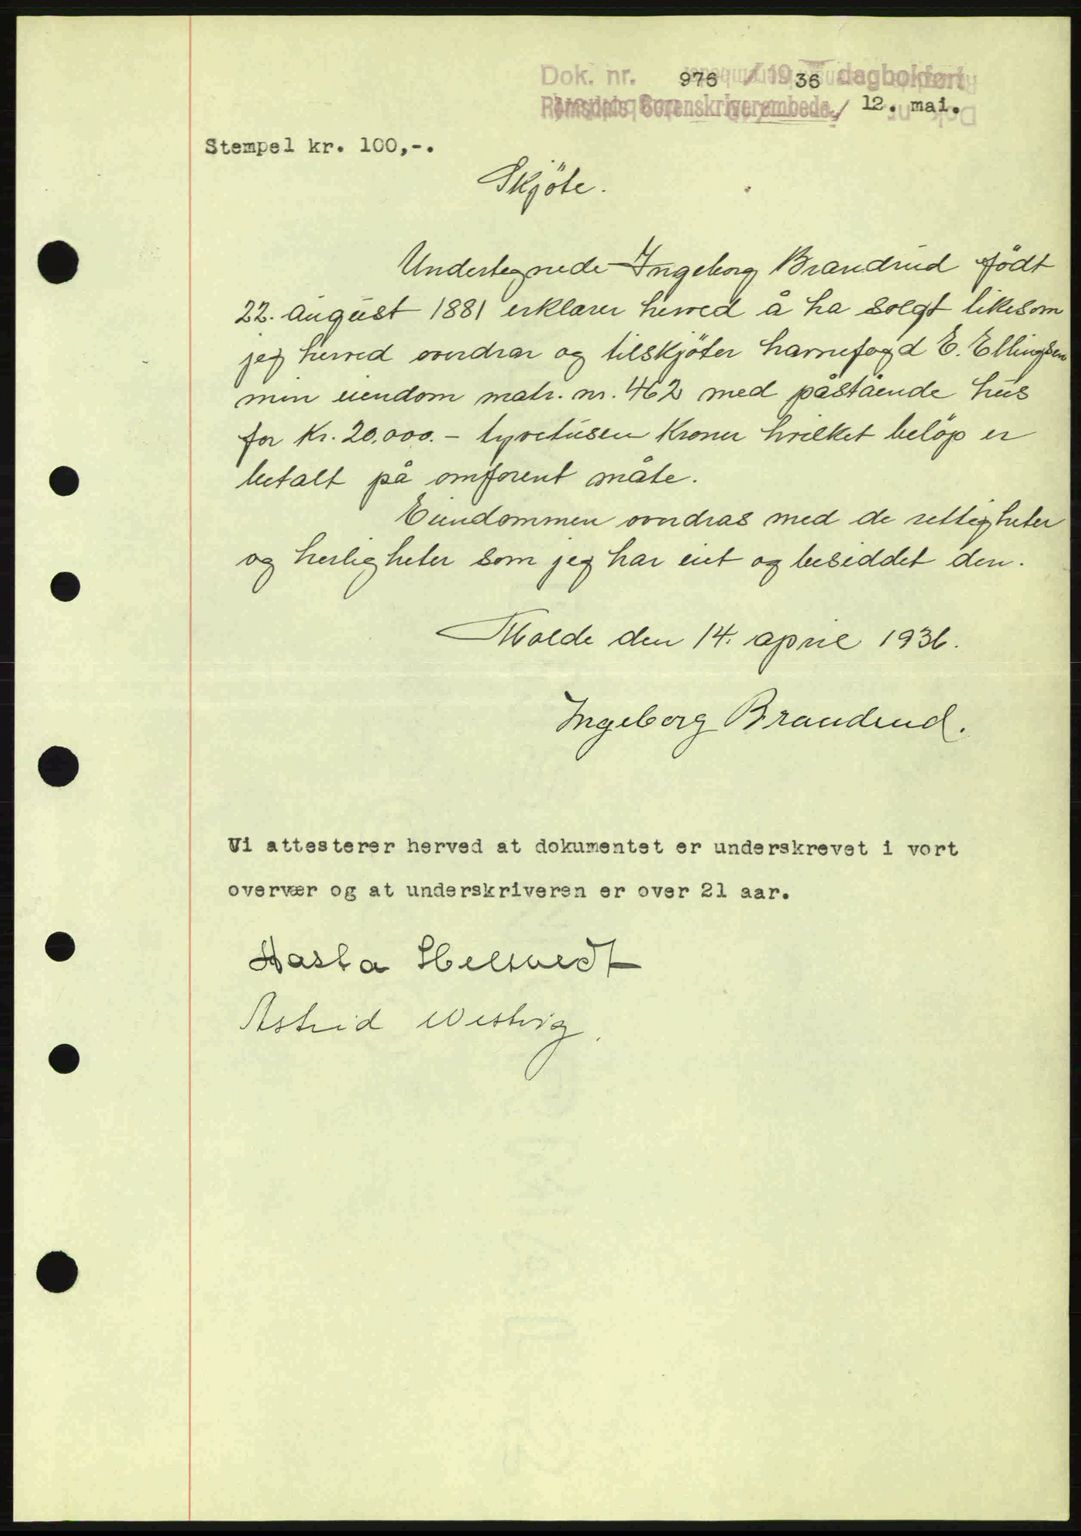 Dok. nr. 976 / 1936 dagbokført
Romsdals Sorenskriverembede / 12. mai.
Stempel kr. 100,-.
Skjöte.
Undertegnede Ingeborg Brandrud född
22. august 1881 erklærer herved å ha solgt likesom
jeg herved overdrar og tilskjöter havnefogd E. Ellingsen
min eiendom matr. nr. 462 med påstående hus
for Kr. 20.000.- tyvetusen Kroner hvilket belöp er
betalt på omforent måte.
Eiendommen overdras med de rettigheter
og herligheter som jeg har eiet og besiddet den.
Molde den 14. april 1936.
Ingeborg Brandrud.
Vi attesterer herved at dokumentet er underskrevet i vort
overvær og at underskriveren er over 21 aar.
Aasta
Astrid Westvig.